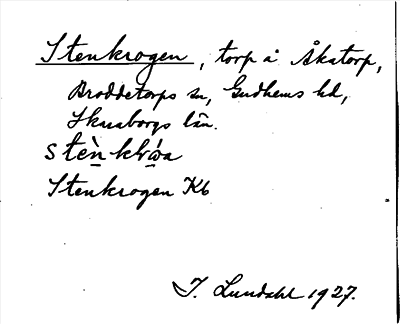 Stenkrogen, torp å Åkatorp,
Broddetorps sn, Gudhems hd,
Skaraborgs län.
Stenkrogen Kb
I. Lundahl 1927.